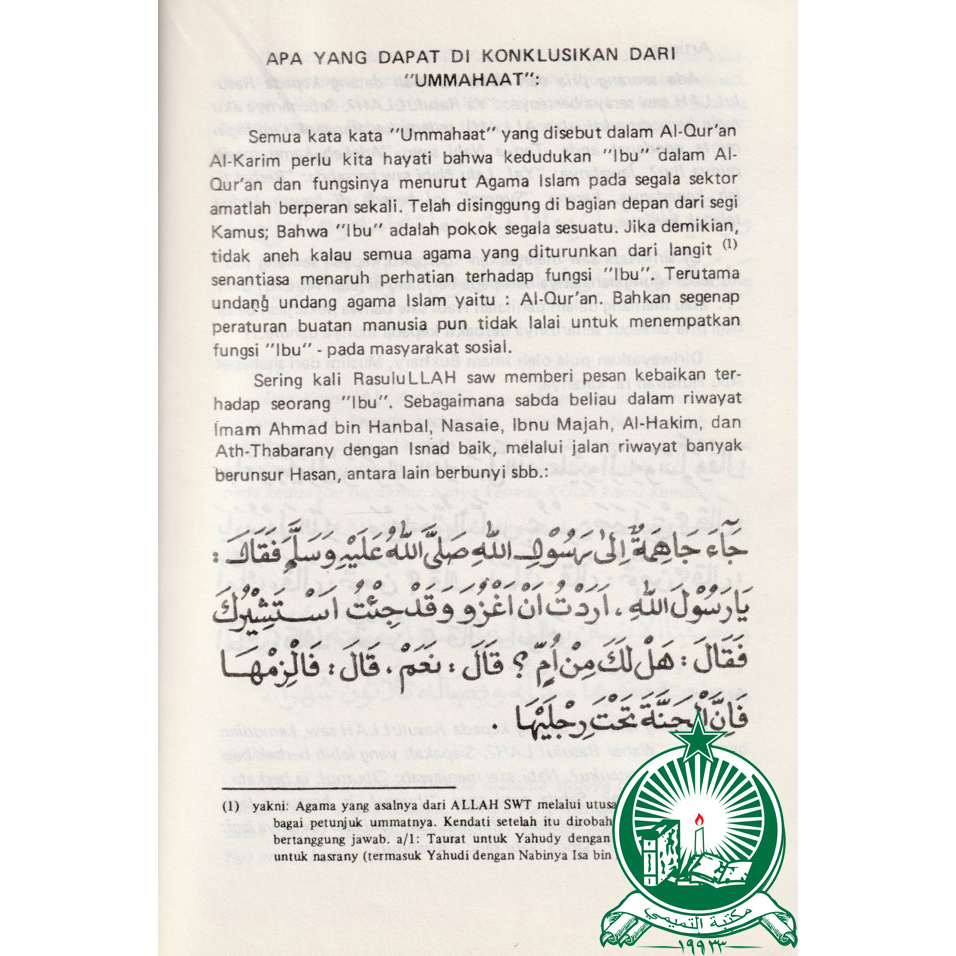 APA YANG DAPAT DI KONKLUSIKAN DARI
"UMMAHAAT":
Semua kata kata "Ummahaat" yang disebut dalam Al-Qur'an
Al-Karim perlu kita hayati bahwa kedudukan "Ibu" dalam Al-
Qur'an dan fungsinya menurut Agama Islam pada segala sektor
amatlah berperan sekali. Telah disinggung di bagian depan dari segi
Kamus; Bahwa "Ibu" adalah pokok segala sesuatu. Jika demikian,
tidak aneh kalau semua agama yang diturunkan dari langit (1)
senantiasa menaruh perhatian terhadap fungsi "Ibu". Terutama
undang undang agama Islam yaitu : Al-Qur'an. Bahkan segenap
peraturan buatan manusia pun tidak lalai untuk menempatkan
fungsi "Ibu" - pada masyarakat sosial.
Sering kali RasuluLLAH saw memberi pesan kebaikan ter-
hadap seorang "Ibu". Sebagaimana sabda beliau dalam riwayat
Imam Ahmad bin Hanbal, Nasaie, Ibnu Majah, Al-Hakim, dan
Ath-Thabarany dengan Isnad baik, melalui jalan riwayat banyak
berunsur Hasan, antara lain berbunyi sbb.:
جَآءَ جَاهِمَةٌ اِلىٰ رَسُوْلِ اللهِ صَلَّى اللهُ عَلَيْهِ وَسَلَّمَ فَقَالَ :
يَارَسُوْلَ اللهِ ، اَرَدْتُ اَنْ اَغْزُوَ وَقَدْ جِئْتُ اَسْتَشِيْرُكَ
فَقَالَ : هَلْ لَكَ مِنْ اُمٍّ ؟ قَالَ : نَعَمْ ، قَالَ : فَالْزِمْهَا
فَاِنَّ الْجَنَّةَ تَحْتَ رِجْلَيْهَا .
(1) yakni: Agama yang asalnya dari ALLAH SWT melalui utusa
bagai petunjuk ummatnya. Kendati setelah itu dirobah
bertanggung jawab. a/1: Taurat untuk Yahudy dengan
untuk nasrany (termasuk Yahudi dengan Nabinya Isa bin
مكتبة التميمي
١٩٩٣٣